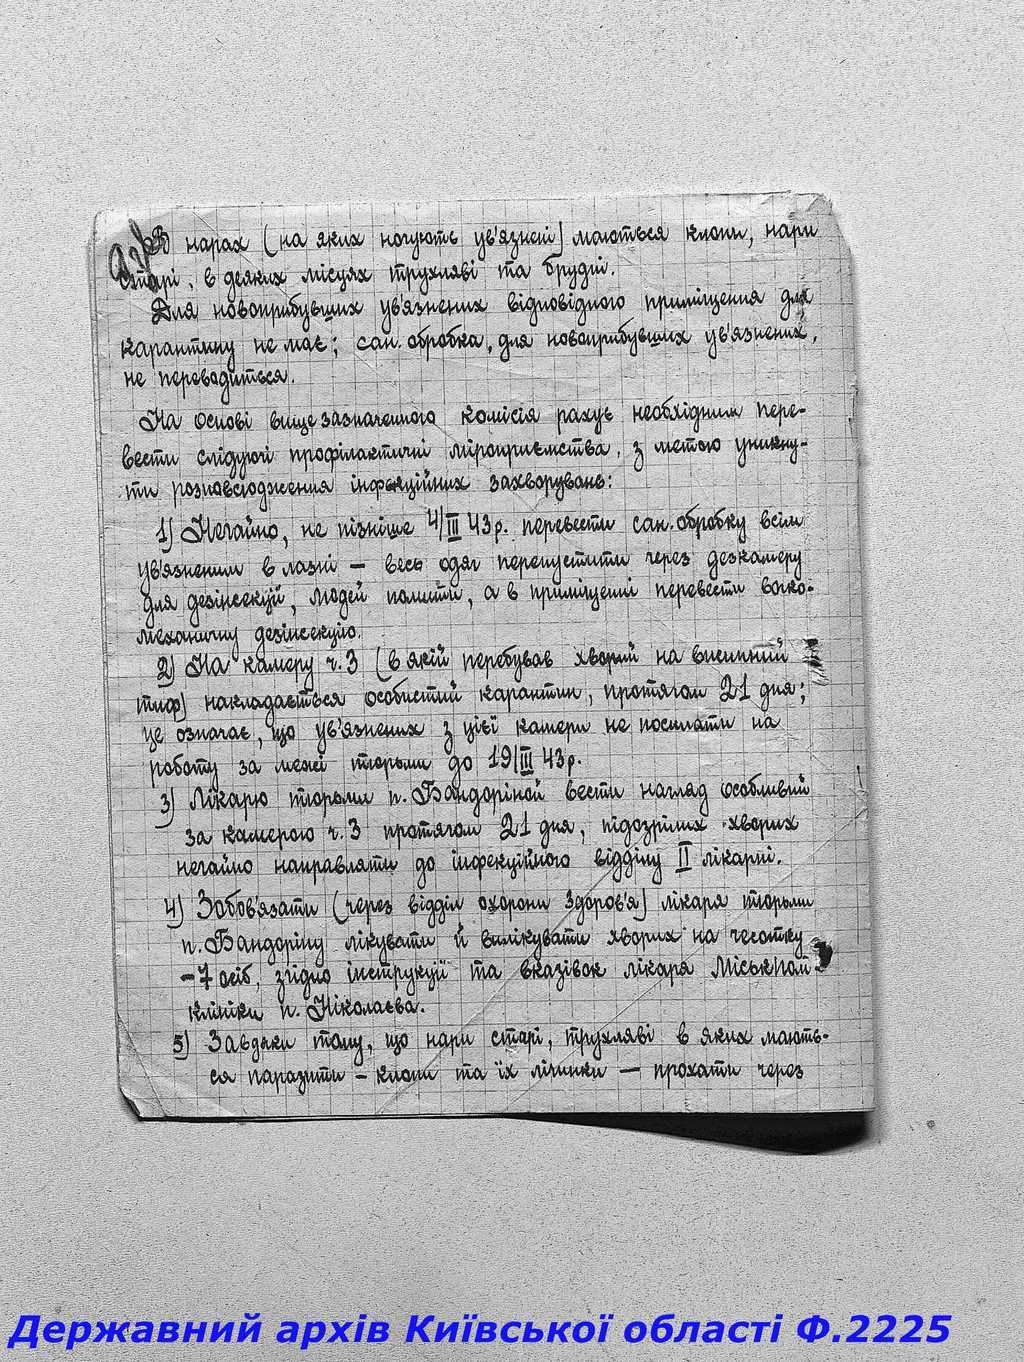 В нарах (на яких ночують ув'язнені) маються клопи, нари
старі, в деяких місцях трухляві та брудні.
Для новоприбувших ув'язнених відповідного приміщення для
карантину не має; сан. обробка, для новоприбувших ув'язнених,
не переводиться.
На основі вищезазначенного комісія рахує необхідним пере-
вести слідуючі профілактичні міроприємства, з метою уникну-
ти розповсюдження інфекційних захворувань:
1) Негайно, не пізніше 4/III 43р. перевести сан. обробку всім
ув'язненим в лазні — весь одяг перепустити через дезкамеру
для дезінсекції, людей помити, а в приміщенні перевести волого-
механичну дезінсекцію.
2) На камеру ч. 3 (в якій перебував хворий на висипний
тиф) накладається особистий карантин, протягом 21 дня;
це означає, що ув'язнених з цієї камери не посилати на
роботу за межі тюрьми до 19/III 43р.
3) Лікарю тюрьми п. Бандоріной вести нагляд особливий
за камерою ч. 3 протягом 21 дня, підозрілих хворих
негайно направляти до інфекційного відділу II лікарні.
4) Зобов'язати (через відділ охорони Здоров'я) лікаря тюрьми
п. Бандоріну лікувати й вилікувати хворих на чесотку
–7 осіб, згідно інструкції та вказівок лікаря Міськполі-
клініки п. Ніколаєва.
5) Завдяки тому, що нари старі, трухляві в яких мають-
ся паразити – клопи та їх лічинки — прохати через
Державний архів Київської області Ф.2225